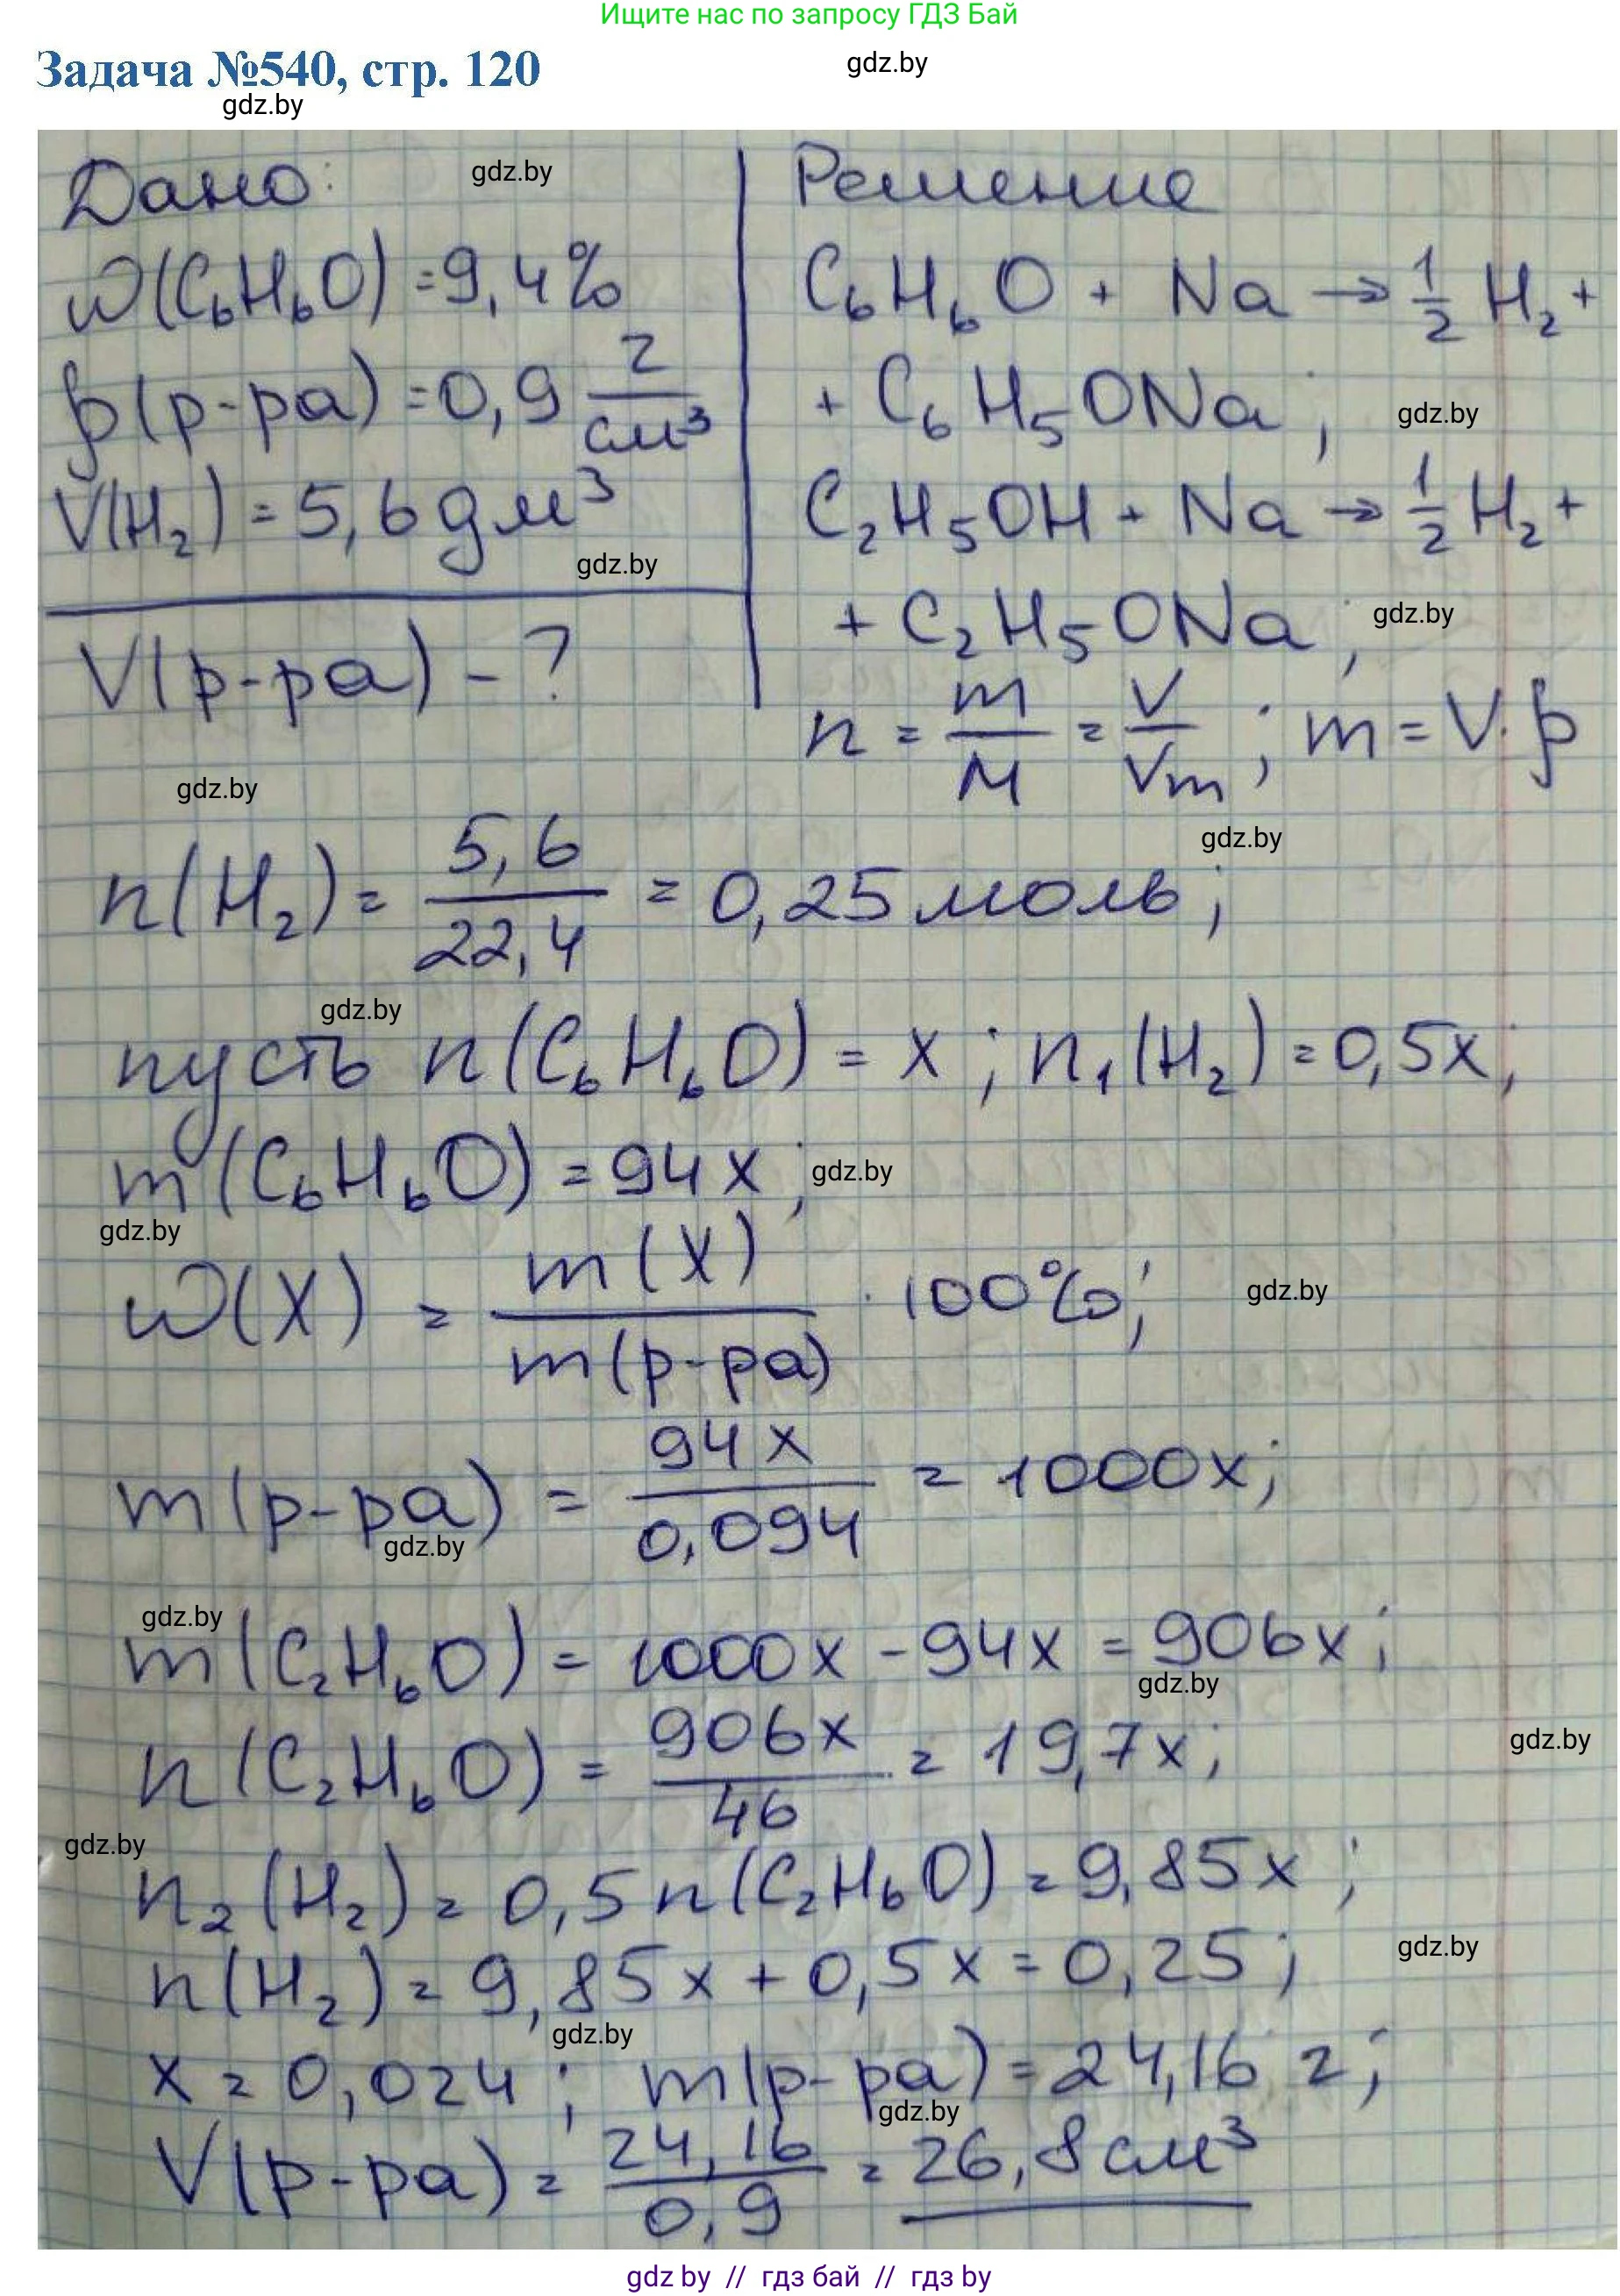 Ищите нас по запросу ГДЗ Бай
Задача №540, стр. 120
gdz.by
gdz.by
Дано:
gdz.by
Решение
ω(C₆H₆O) = 9,4%
ρ(р-ра) = 0,9 г/см³
V(H₂) = 5,6 дм³
gdz.by
V(р-ра) - ?
C₆H₆O + Na → 1/2 H₂ +
+ C₆H₅ONa;
gdz.by
C₂H₅OH + Na → 1/2 H₂ +
+ C₂H₅ONa;
gdz.by
n = m/M = V/Vm; m = V·ρ
gdz.by
gdz.by
n(H₂) = 5,6/22,4 = 0,25 моль;
gdz.by
пусть n(C₆H₆O) = x; n₁(H₂) = 0,5x;
m(C₆H₆O) = 94x;
gdz.by
gdz.by
ω(X) = m(X)/m(р-ра) · 100%;
gdz.by
m(р-ра) = 94x/0,094 = 1000x;
gdz.by
gdz.by
m(C₂H₆O) = 1000x - 94x = 906x;
gdz.by
n(C₂H₆O) = 906x/46 = 19,7x;
gdz.by
gdz.by
n₂(H₂) = 0,5n(C₂H₆O) = 9,85x;
n(H₂) = 9,85x + 0,5x = 0,25;
gdz.by
gdz.by
x = 0,024; m(р-ра) = 24,16 г;
gdz.by
V(р-ра) = 24,16/0,9 = 26,8 см³
gdz by // гдз бай // гдз by